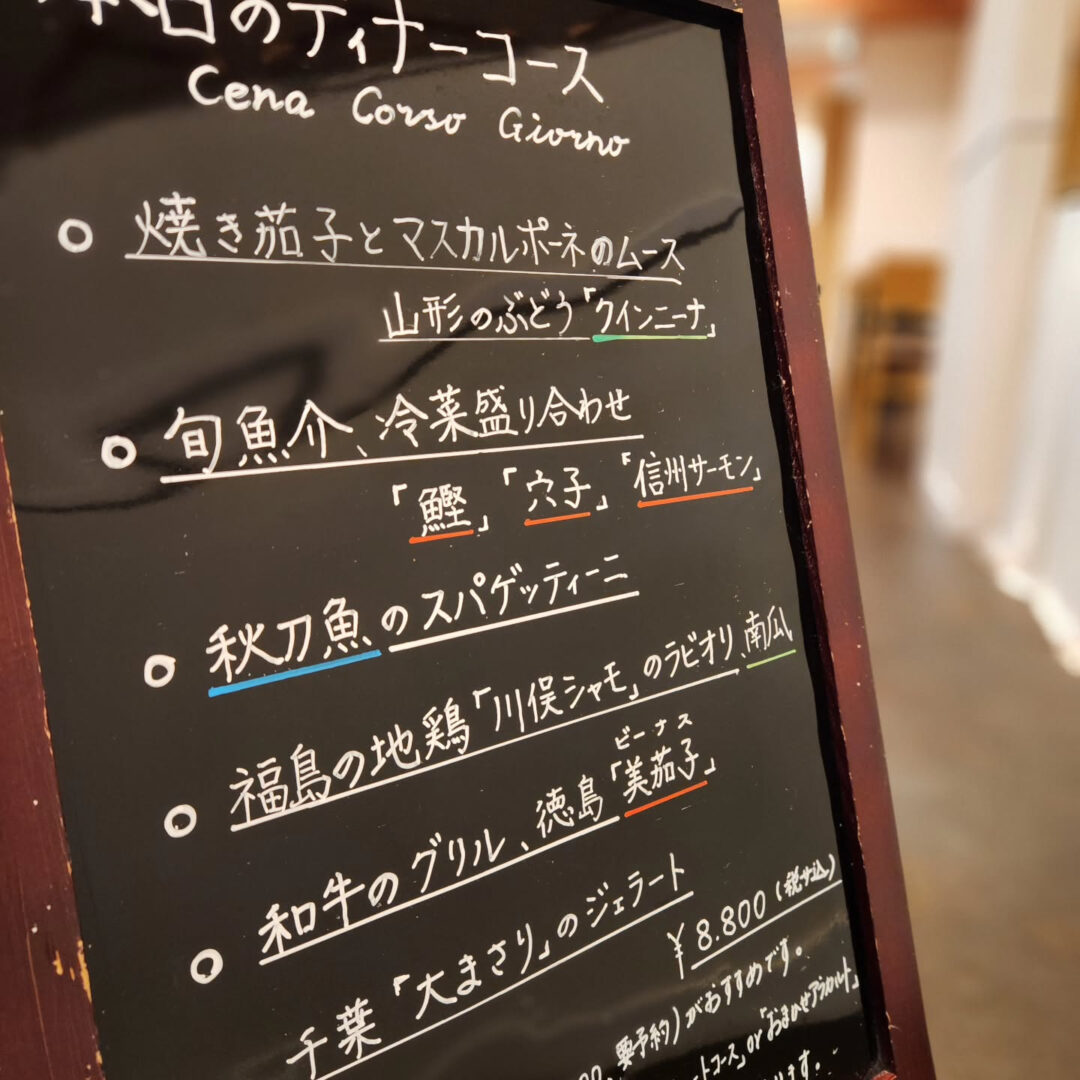 本日のディナーコース
Cena Corso Giorno
焼き茄子とマスカルポーネのムース
山形のぶどう「クインニーナ」
旬魚介、冷菜盛り合わせ
「鰹」「穴子」「信州サーモン」
秋刀魚のスパゲッティーニ
福島の地鶏「川俣シャモ」のラビオリ、南瓜
和牛のグリル、徳島「美茄子」
ビーナス
千葉「大まさり」のジェラート
¥8.800(税サ込)
要予約)がおすすめです。
トコース」or「おまかせアラカルト」
ります。